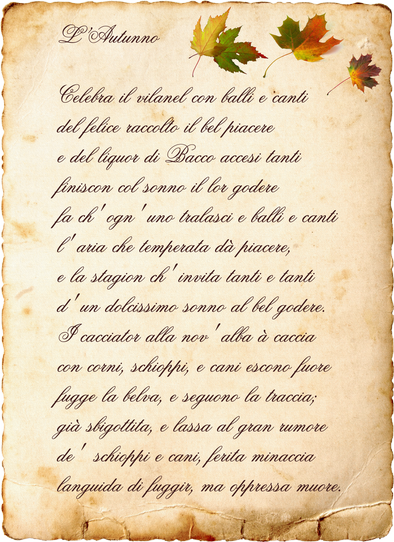 L'Autunno
Celebra il vilanel con balli e canti
del felice raccolto il bel piacere
e del liquor di Bacco accesi tanti
finiscon col sonno il lor godere
fa ch' ogn' uno tralasci e balli e canti
l' aria che temperata dà piacere,
e la stagion ch' invita tanti e tanti
d' un dolcissimo sonno al bel godere.
I cacciator alla nov' alba à caccia
con corni, schioppi, e cani escono fuore
fugge la belva, e seguono la traccia;
già sbigottita, e lassa al gran rumore
de' schioppi e cani, ferita minaccia
languida di fuggir, ma oppressa muore.